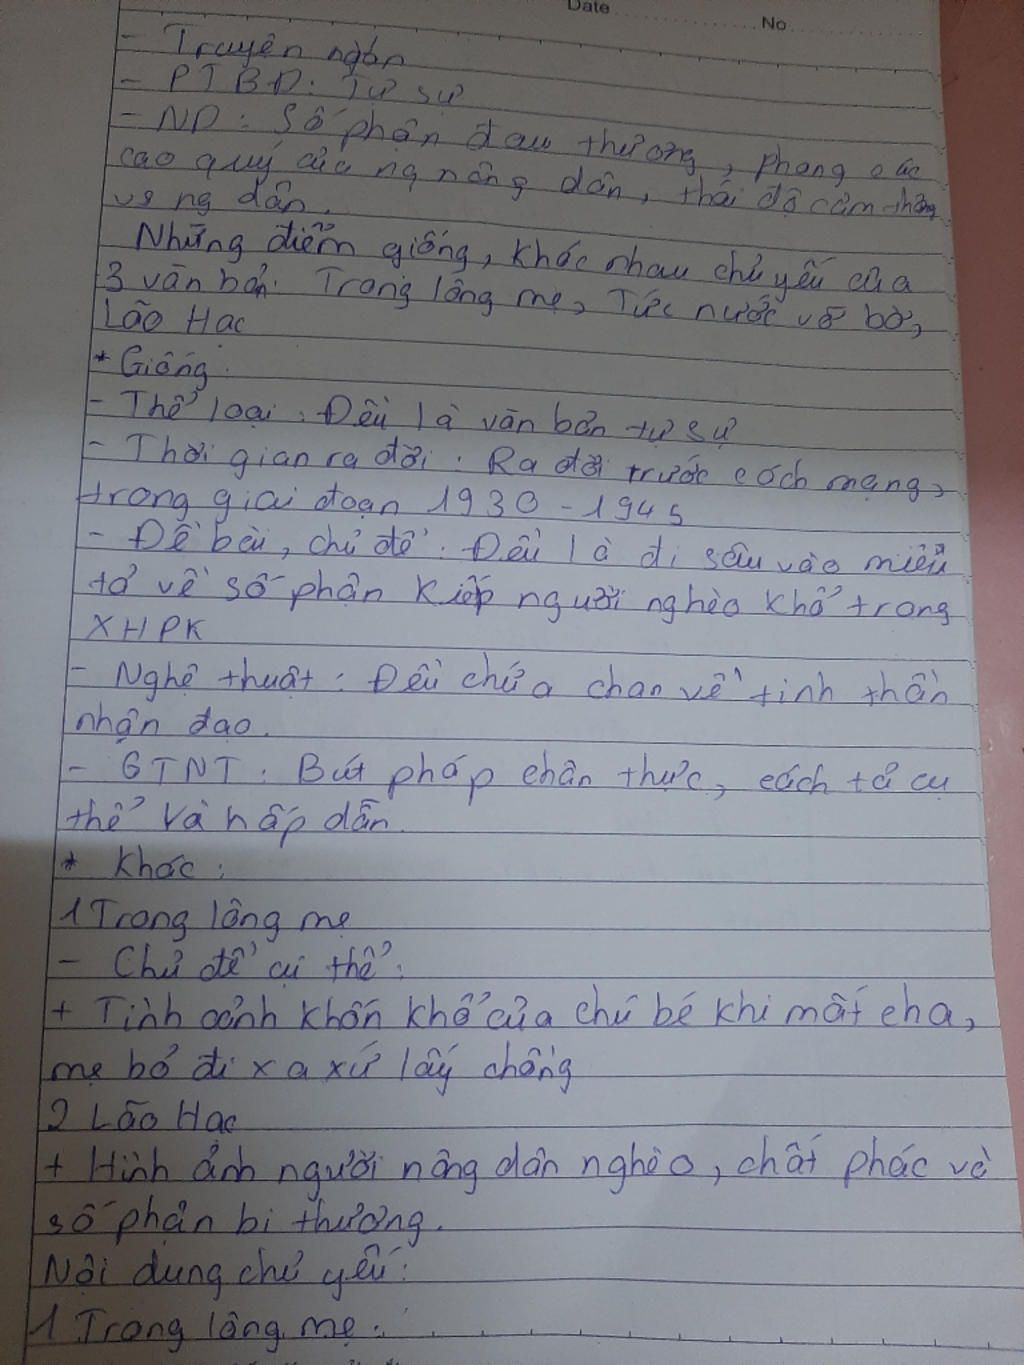 Date ........................ No ........................
- Truyện ngắn
- PTBĐ: Tự sự
- ND: Số phận đau thương, phẩm các
cao quý của ng nông dân, thái độ cảm thông
về ng dân.
Những điểm giống, khác nhau chủ yếu của
3 văn bản: Trong lòng mẹ, Tức nước vỡ bờ,
Lão Hạc
* Giống:
- Thể loại: Đều là văn bản tự sự
- Thời gian ra đời: Ra đời trước cách mạng,
trong giai đoạn 1930 - 1945
- Đề bài, chủ đề: Đều là đi sâu vào miêu
tả về số phận kiếp người nghèo khổ trong
XHPK
- Nghệ thuật: Đều chứa chan về tinh thần
nhân đạo.
- GTNT: Bút pháp chân thực, cách tả cụ
thể và hấp dẫn.
* Khác:
1 Trong lòng mẹ
- Chủ đề cụ thể:
+ Tình cảnh khốn khổ của chú bé khi mất cha,
mẹ bỏ đi xa xứ lấy chồng
2 Lão Hạc
+ Hình ảnh người nông dân nghèo, chất phác và
số phận bi thương.
Nội dung chủ yếu:
1 Trong lòng mẹ: